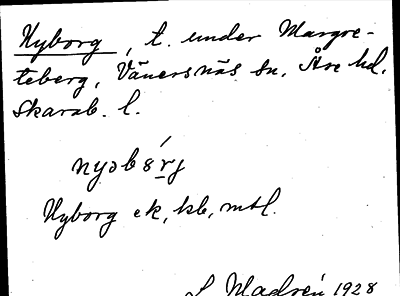 Nyborg, t. under Margre-
teberg, Vänersnäs sn, Åse hd.
Skarab. l.
nyȯbórj
Nyborg ek, kb, mtl.
1928